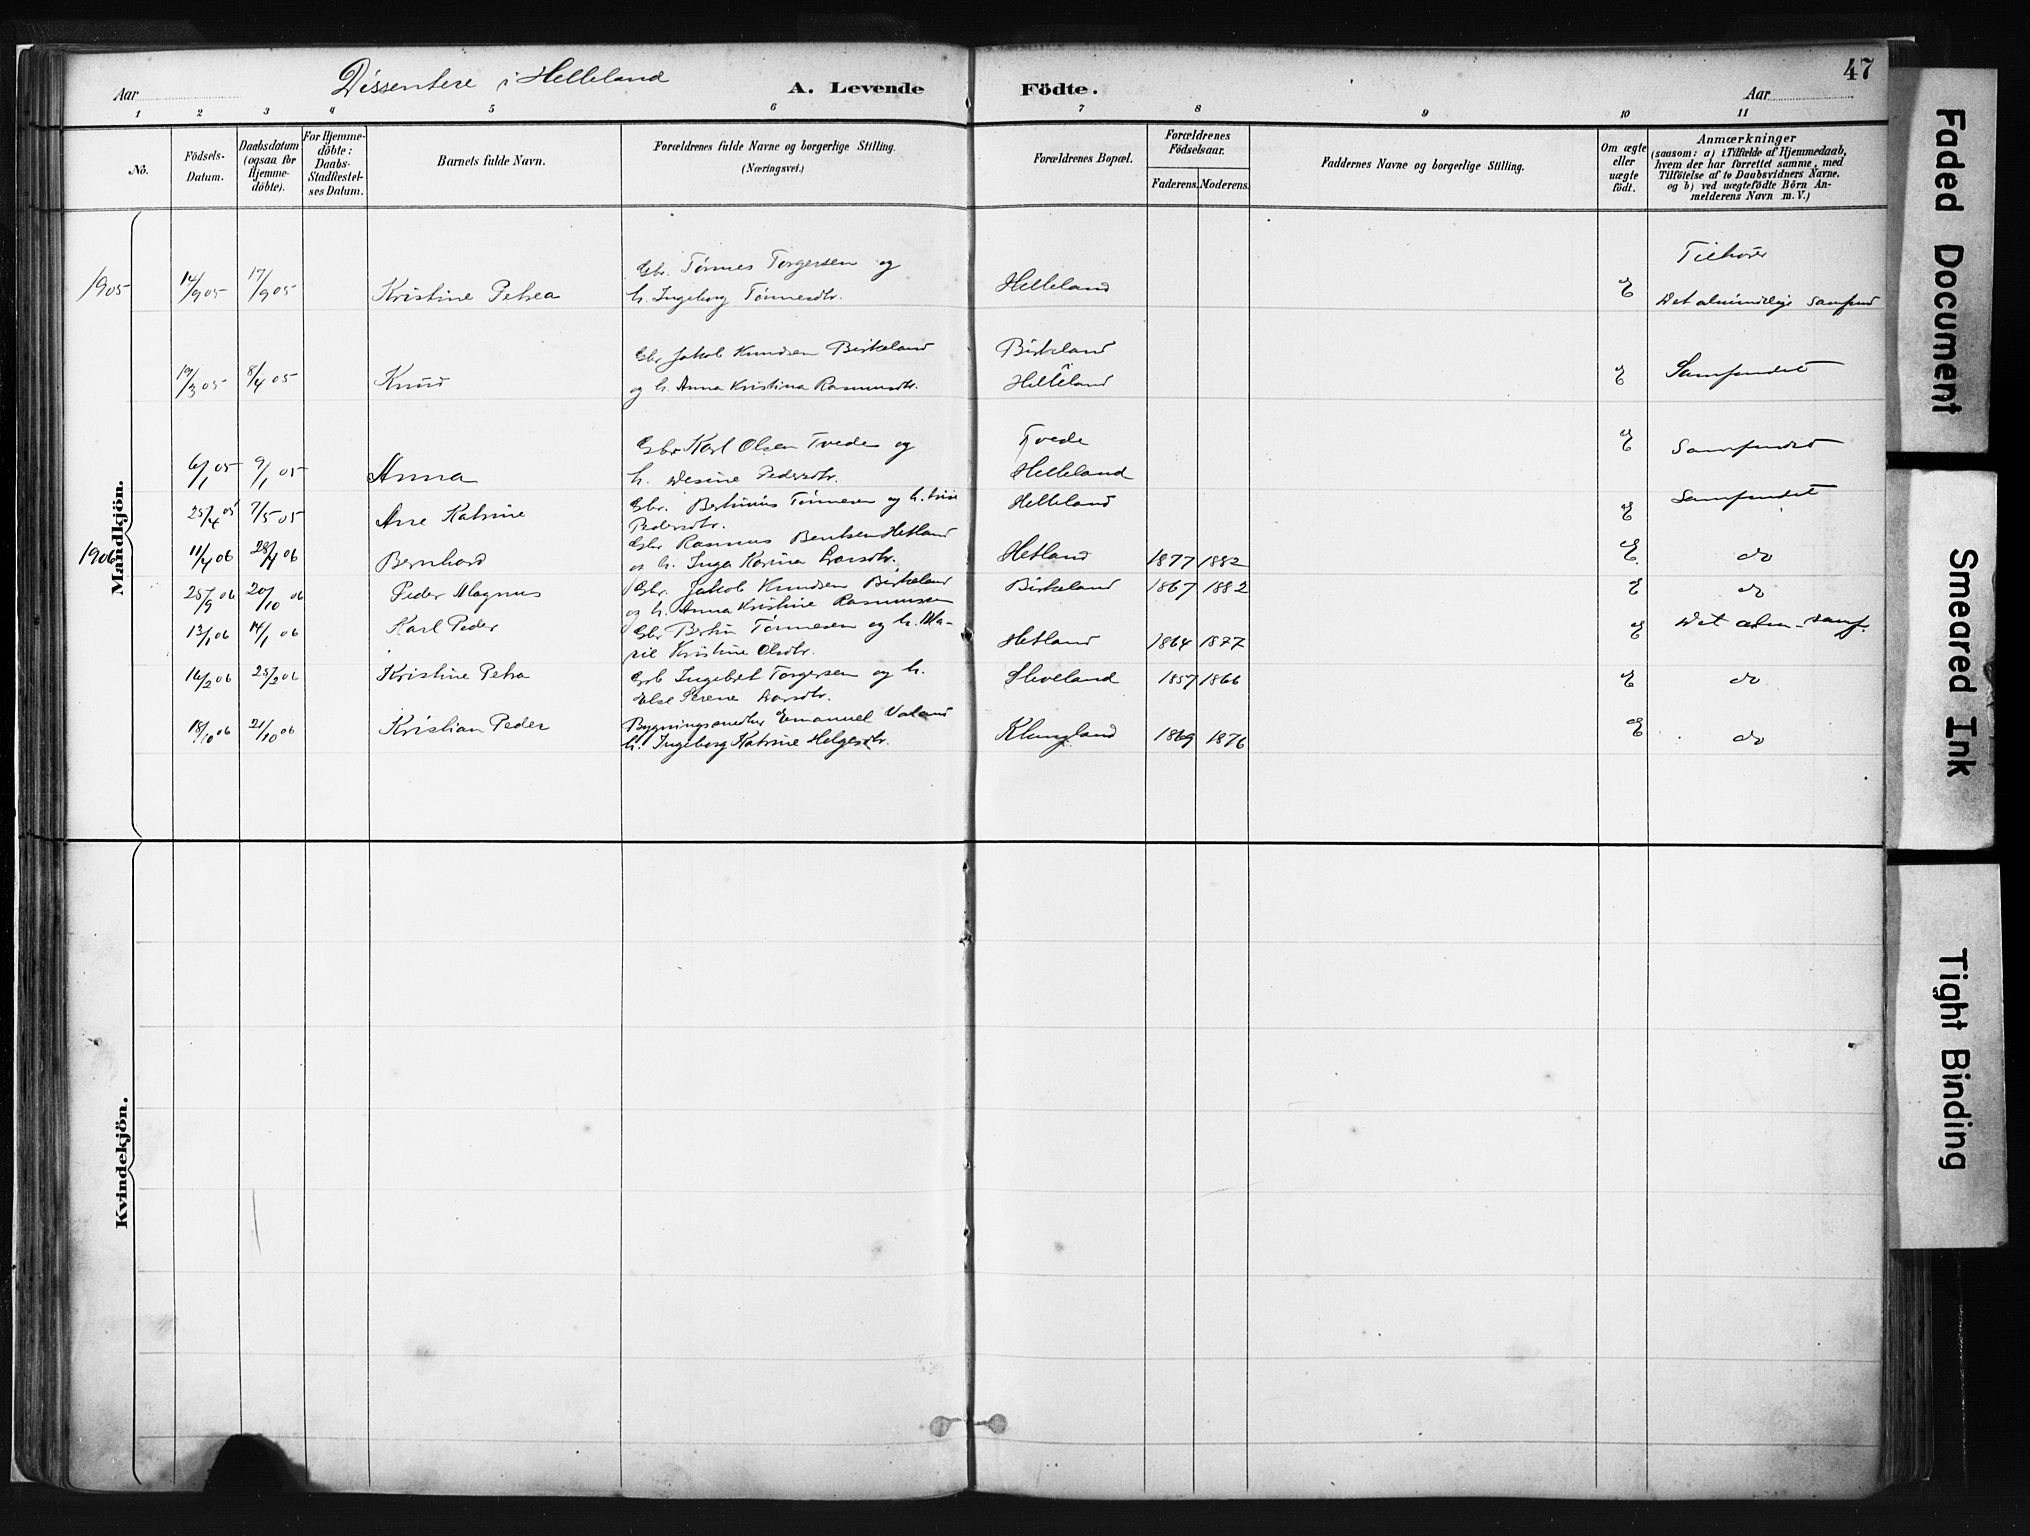 Dissentere i Helleland
Aar
A. Levende
Födte.
47
Aar
1 2 3 4 5 6 7 8 9 10 11
No.
Födsels-
Datum.
Daabsdatum
(ogsaa for
Hjemme-
döbte).
For Hjemme-
döbte:
Daabs-
Stadfæstel-
ses Datum.
Barnets fulde Navn.
Forældrenes fulde Navne og borgerlige Stilling.
(Næringsvei.)
Forældrenes Bopæl.
Forældrenes
Födselsaar.
Faderens. Moderens.
Faddernes Navne og borgerlige Stilling.
Om ægte
eller
uægte
födt.
Anmærkninger
(saasom: a) i Tilfælde af Hjemmedaab,
hvem der har forrettet samme, med
Tilföielse af to Daabsvidners Navne,
og b) ved uægtefödte Börn An-
melderens Navn m. V.)
Mandkjön.
1905 14/9 05 17/9 05 Kristine Petrea
Gbr. Tønnes Torgersen og
h. Ingeborg Tønnesdtr.
Helleland E
Tilhører
Det almindelige Samfund
19/3 05 8/4 05 Knud
Gbr Jakob Knudsen Birkeland
og h. Anna Kristina Rasmusdtr.
Birkeland
Helleland
E Samfundet
6/1 05 9/1 05 Anna
Gbr Karl Olsen Tvede og
h. Desine Pedersdtr.
Tvede
Helleland
E Samfundet
25/4 05 7/5 05 Ane Katrine
Gbr. Bertinius Tønnesen og h.
Pedersdtr.
Helleland E Samfundet
1906 11/4 06 28/4 06 Bernhard
Gbr Rasmus Bentsen Hetland
og h. Inga Karina Larsdtr.
Hetland 1877 1882 E do
25/9 06 20/10 06 Peder Magnus
Gbr. Jakob Knudsen Birkeland
og h. Anna Kristine Rasmussen
Birkeland 1867 1882 E do
13/1 06 14/1 06 Karl Peder
Gbr Bertin Tønnesen og h. Ma-
rie Kristine Olsdtr.
Hetland 1864 1877 E Det alm. Samf.
16/2 06 25/2 06 Kristine Petra
Grb Ingebret Torgersen og h.
Else Serene Larsdtr.
Sleveland 1857 1866 E do
18/10 06 21/10 06 Kristian Peder
Bygningssnedker Emanuel Valand
h. Ingeborg Katrine Helgesdtr.
Klungland 1869 1876 E do
Kvindekjön.
Faded Document
Smeared Ink
Tight Binding